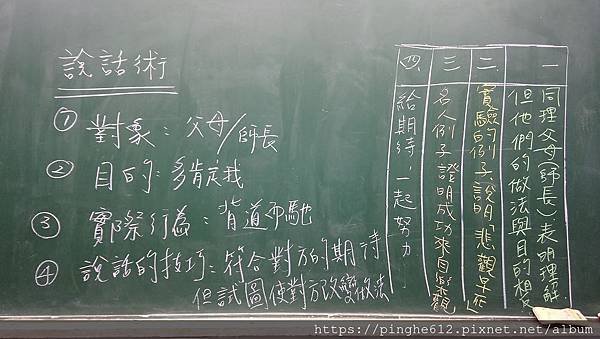 說話術
① 對象：父母/師長
② 目的：多肯定我
③ 實際行為：背道而馳
④ 說話的技巧：符合對方的期待
但試圖使對方改變做法
一
同理父母(師長)，表明理解
但他們的做法與目的相反
二
實驗的例子，說明「悲觀早死」
三
名人例子證明成功來自樂觀
四
給期待，一起努力
https://pinghe612.pixnet.net/album